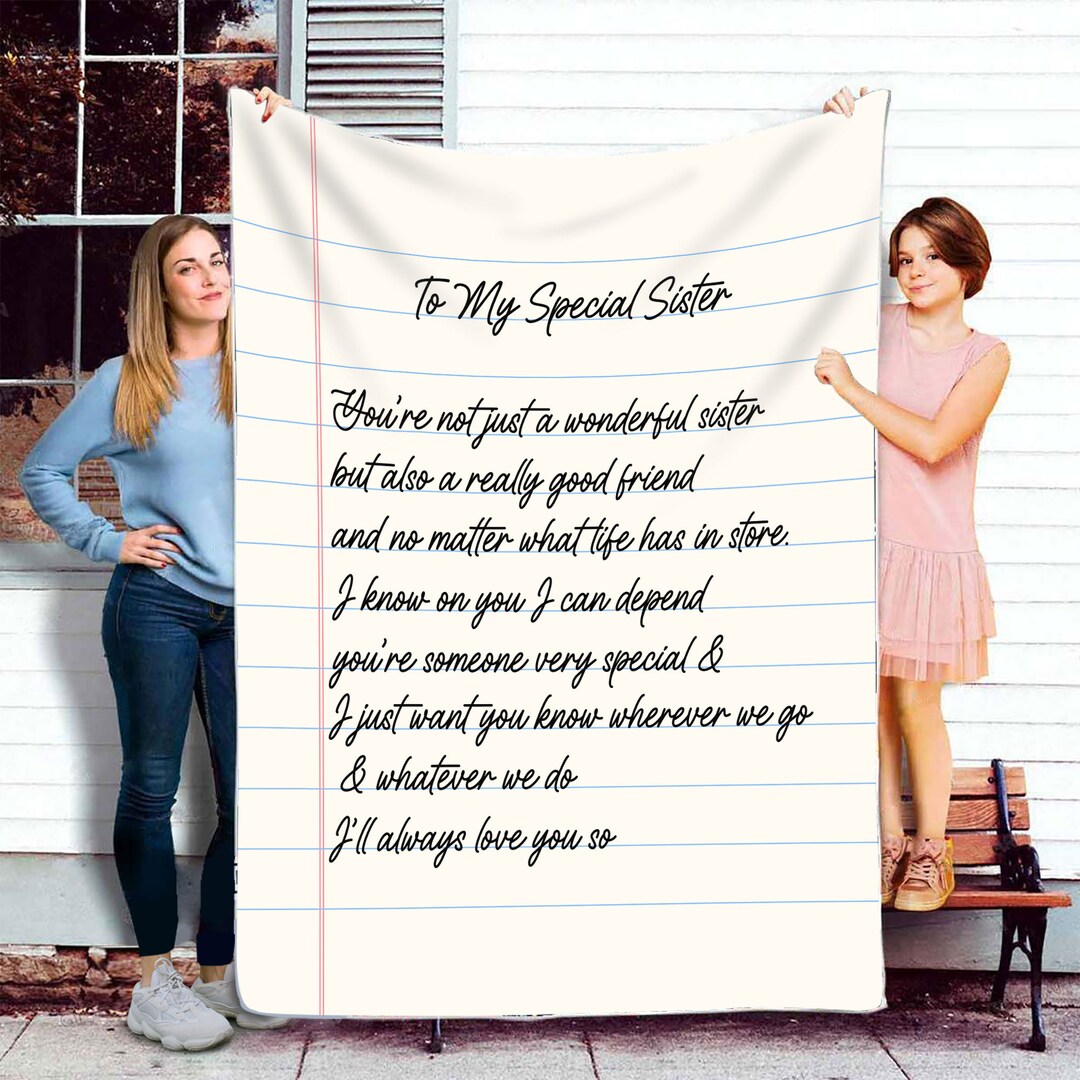 To My Special Sister
You're not just a wonderful sister
but also a really good friend
and no matter what life has in store.
I know on you I can depend
you're someone very special &
I just want you know wherever we go
& whatever we do
I'll always love you so